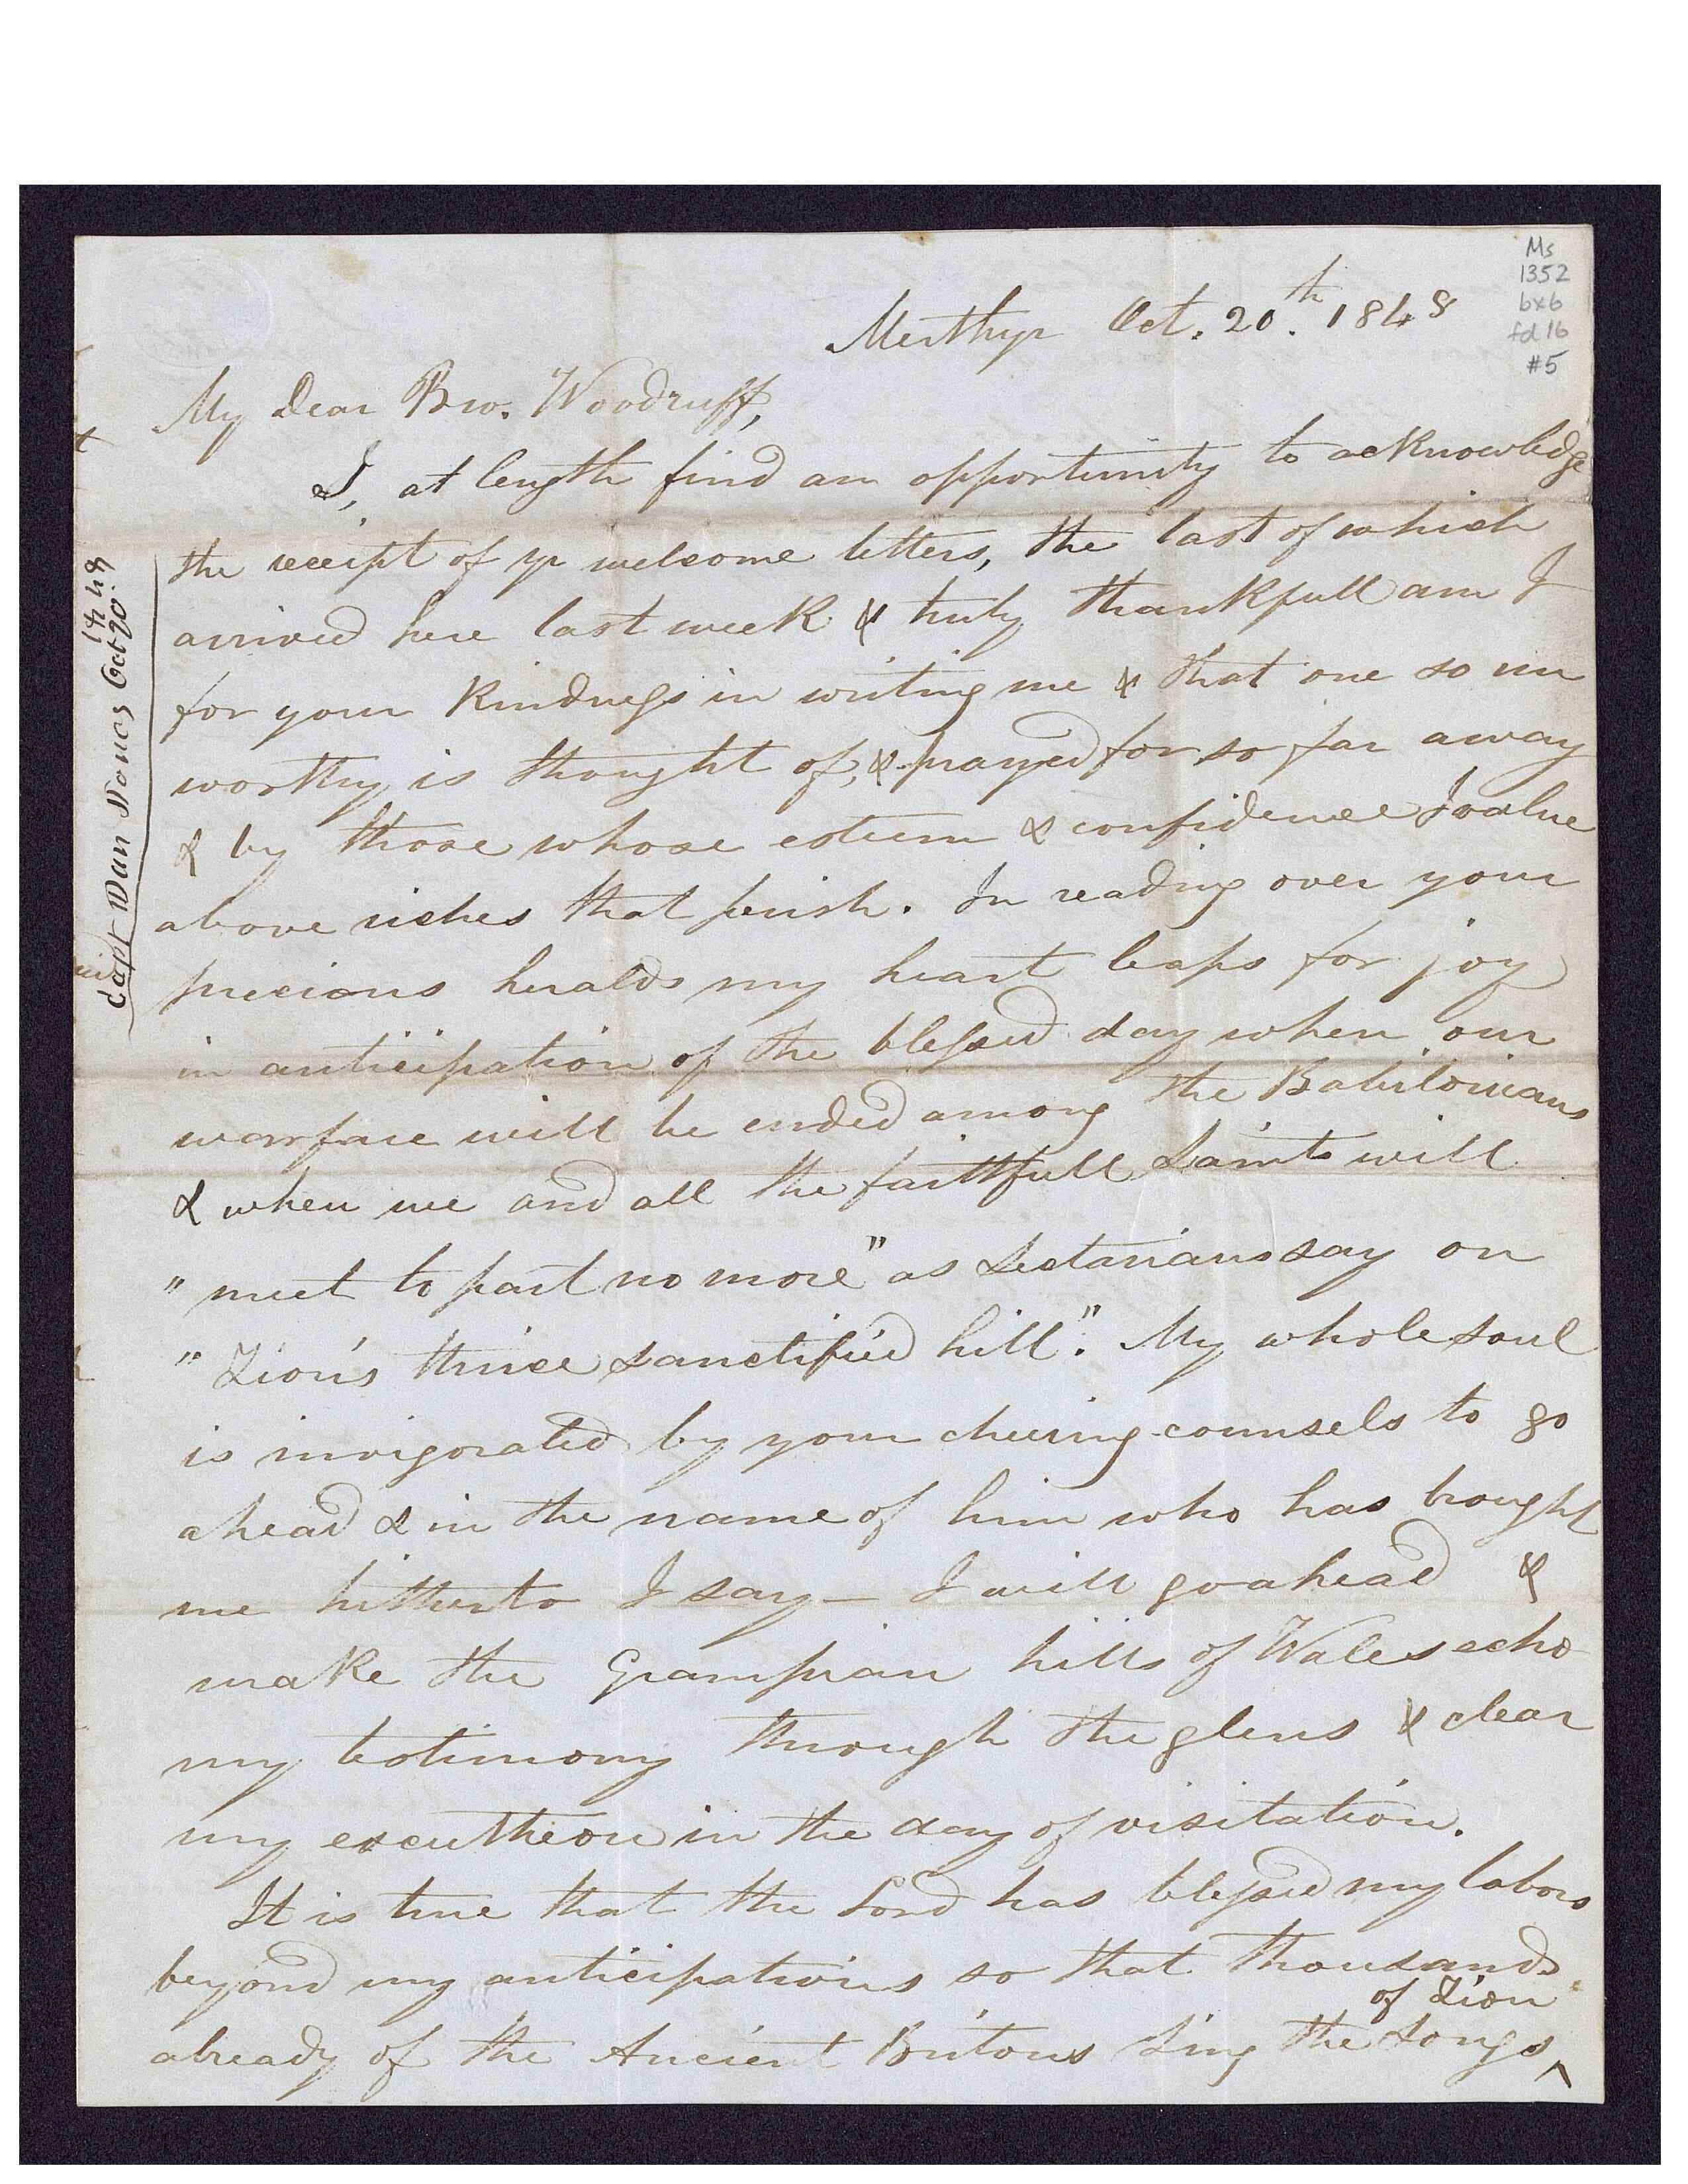 Ms
1352
bx6
fd 16
#5
Merthyr Oct. 20.th 1848
My Dear Bro. Woodruff,
I, at length find an opportunity to acknowledge
the receipt of yr welcome letters, the last of which
arrived here last week & truly thankfull am I
for your kindness in writing me & that one so un
worthy is thought of, & prayed for so far away
& by those whose esteem & confidence I value
above riches that perish. In reading over your
precious heralds my heart leaps for joy
in anticipation of the blessed day when our
warfare will be ended among the Babilonians
& when we and all the faithfull Saints will
"meet to part no more" as Sectarians say on
"Zion's thrice sanctified hill". My whole soul
is invigorated by your cheering counsels to go
ahead & in the name of him who has brought
me hitherto I say — I will go ahead &
make the Grampian hills of Wales echo
my testimony through the glens & clear
my escutheon in the day of visitation.
It is true that the Lord has blessed my labors
beyond my anticipations so that thousands
already of the Ancient Britons sing the songs ^ of Zion
Capt Dan Jones Oct 20th 48